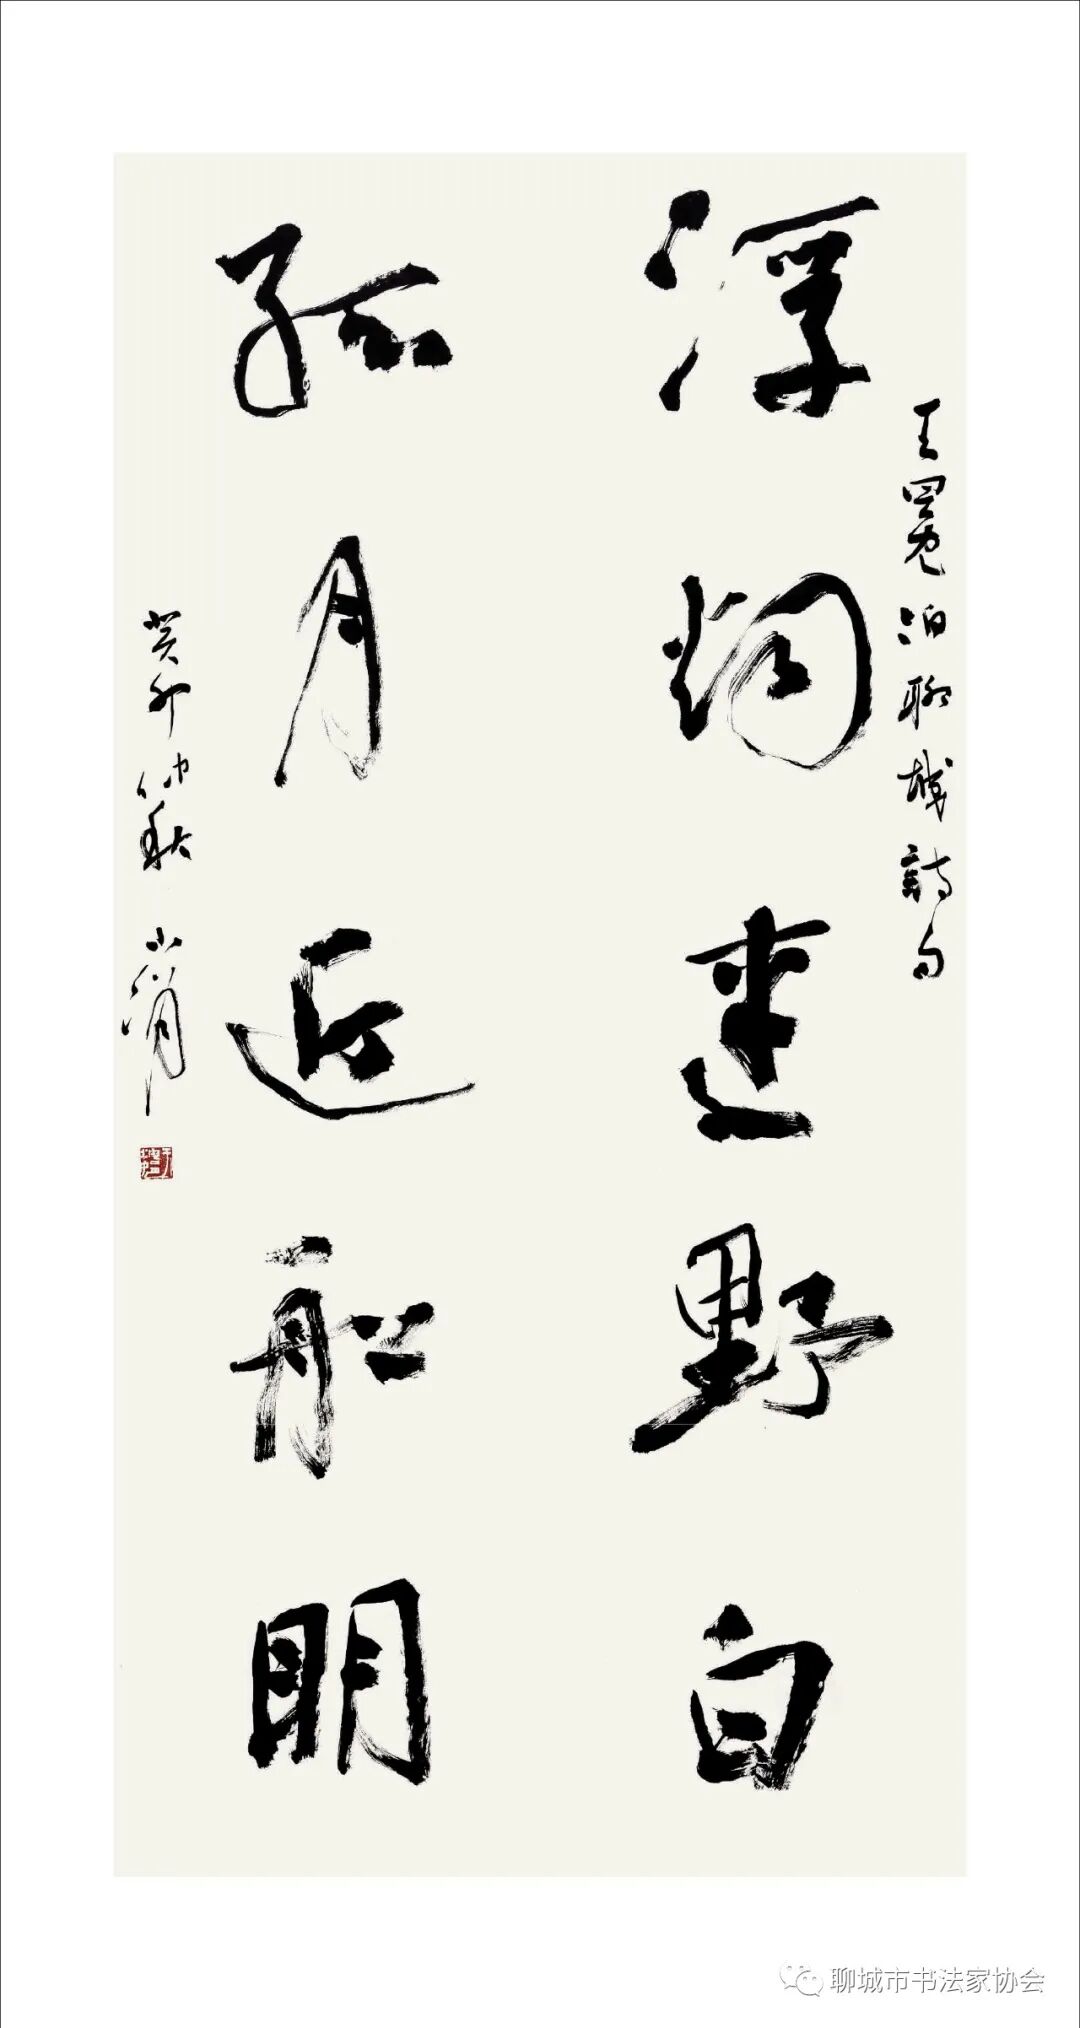 王冕泊聊城詩句
浮烟連野白
孤月近船明
癸卯仲秋 小
聊城市书法家协会